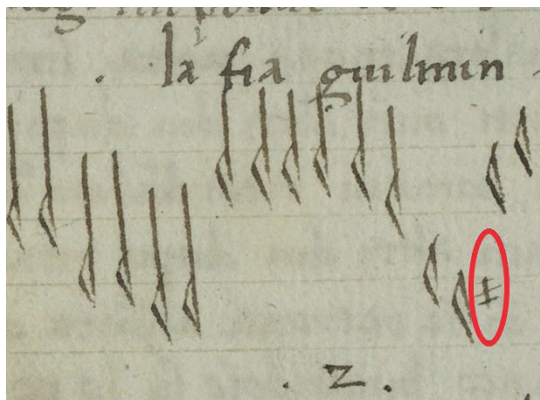 la fia guilmin
. 2 .